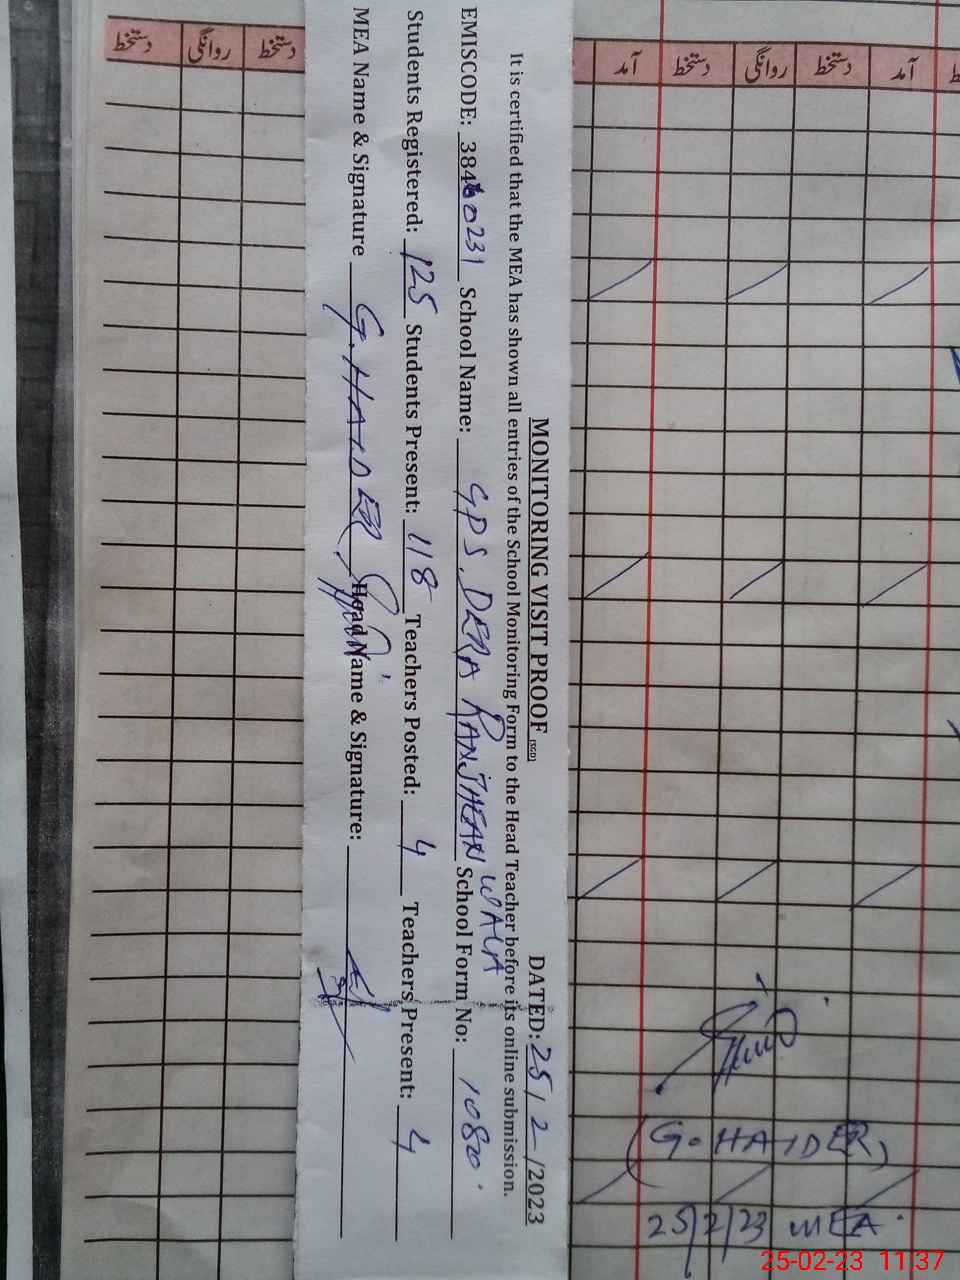 MONITORING VISIT PROOF (SGD) DATED: 25/2/2023
It is certified that the MEA has shown all entries of the School Monitoring Form to the Head Teacher before its online submission.
EMISCODE: 38460231 School Name: GPS. DERA RANJHEAN WALA School Form No: 1080
Students Registered: 125 Students Present: 118 Teachers Posted: 4 Teachers Present: 4
MEA Name & Signature G. HAIDER, Head Name & Signature:
دستخط روانگی دستخط آمد دستخط روانگی دستخط آمد
(G. HAIDER)
25/2/23 MEA.
25-02-23 11:37